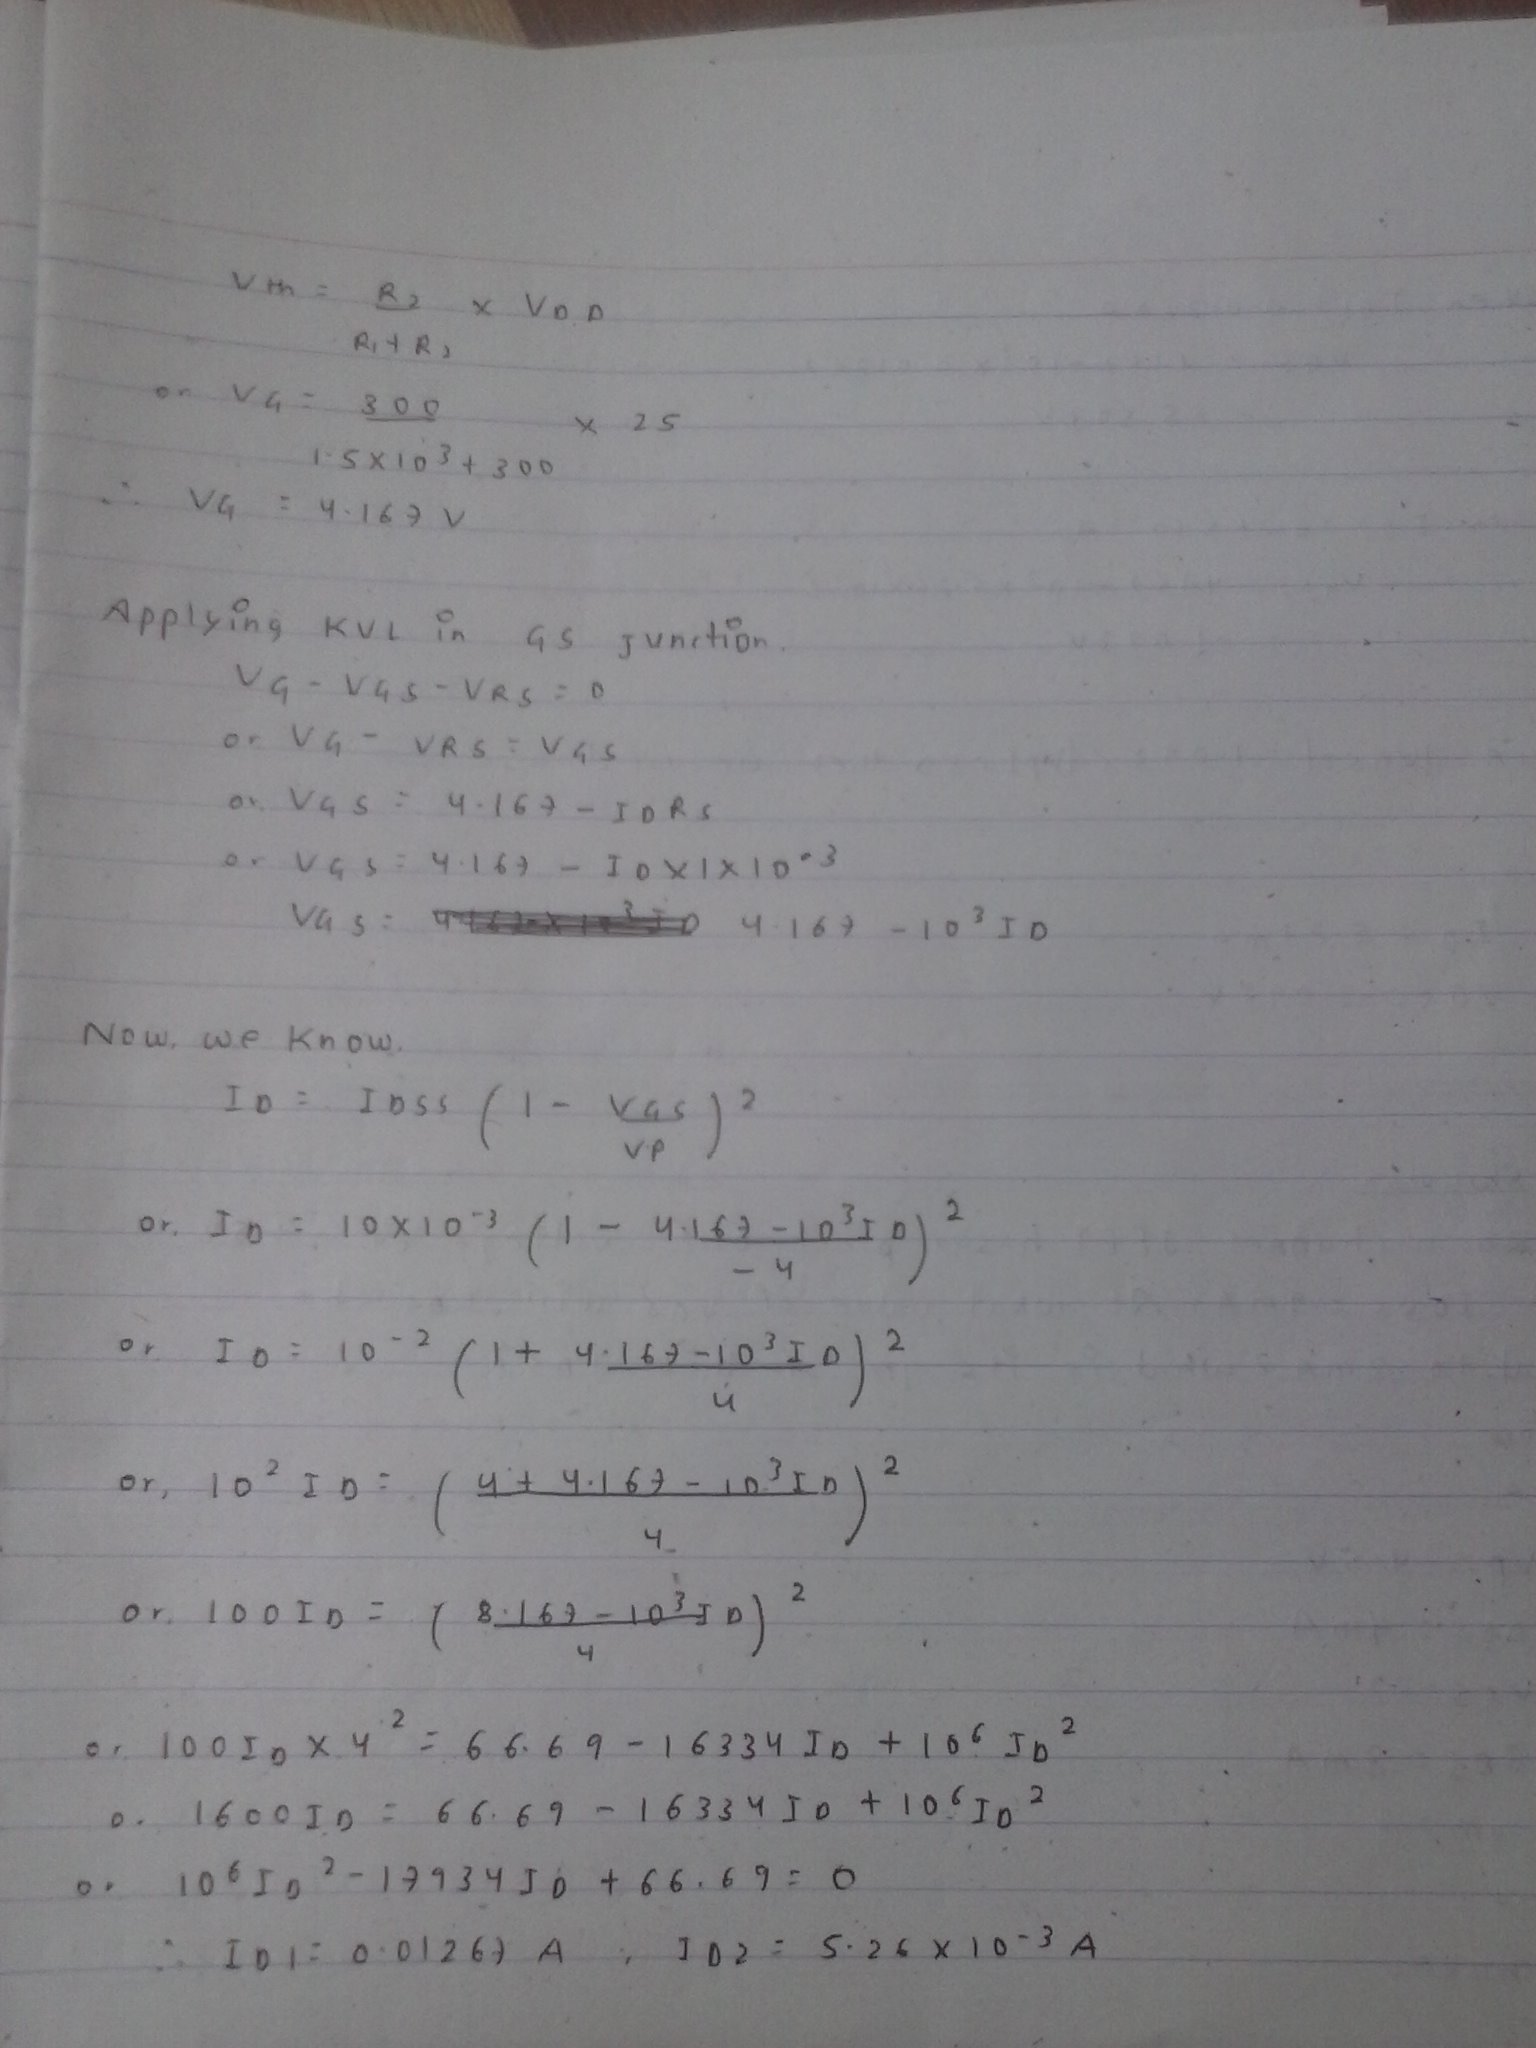 Vth = R2 / R1+R2 × VDD
or VG = 300 / 1.5×10^3+300 × 25
∴ VG = 4.167 V
Applying KVL in GS junction.
VG - VGS - VRS = 0
or VG - VRS = VGS
or. VGS = 4.167 - IDRS
or VGS = 4.167 - ID×1×10^3
VGS = 4.167 - 10^3 ID
Now, we know.
ID = IDSS (1 - VGS / VP)^2
or, ID = 10×10^-3 (1 - 4.167-10^3ID / -4)^2
or ID = 10^-2 (1 + 4.167-10^3ID / 4)^2
or, 10^2 ID = (4 + 4.167 - 10^3ID / 4)^2
or. 100ID = (8.167 - 10^3ID / 4)^2
or 100ID × 4^2 = 66.69 - 16334 ID + 10^6 ID^2
o. 1600ID = 66.69 - 16334 ID + 10^6ID^2
or 10^6ID^2 - 17934ID + 66.69 = 0
∴ ID1 = 0.01267 A , ID2 = 5.26 × 10^-3 A